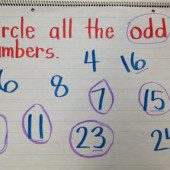 rcle all the odd
umbers.
4 16
6 8 7 15
11 23 24